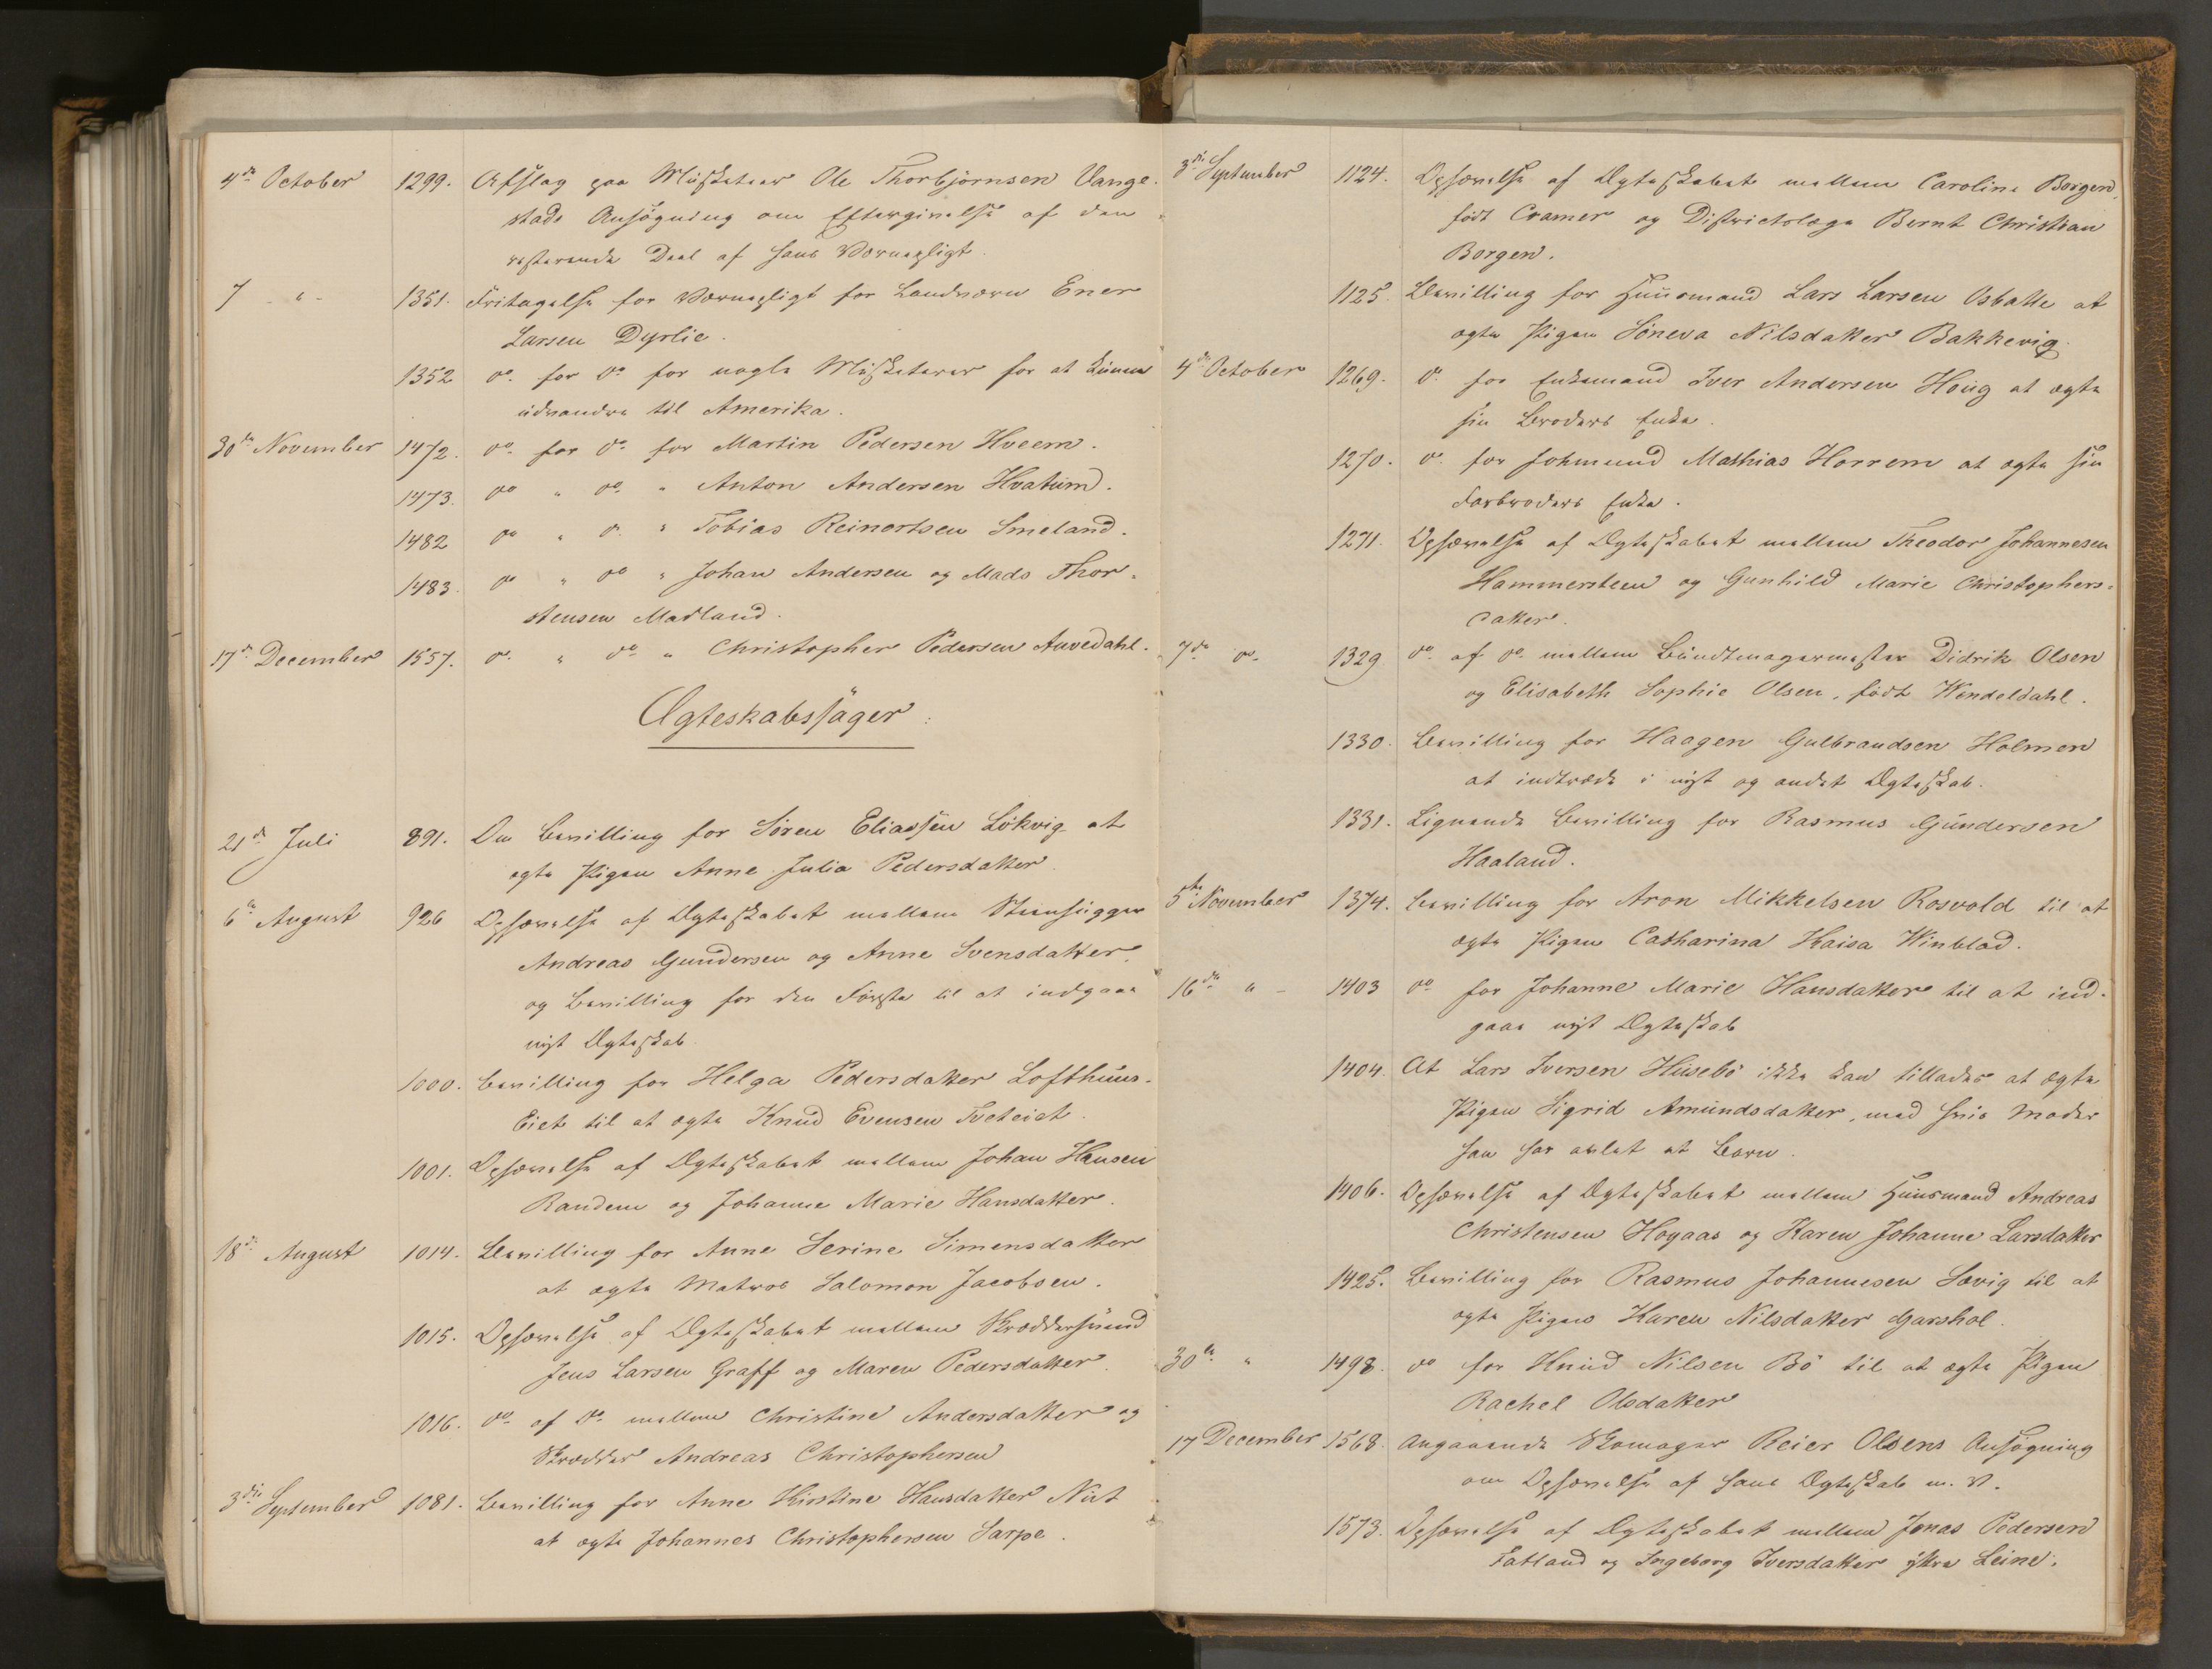 4de October 1299. Afslag paa Musketeer Ole Thorbjørnsen Vange-
stads Ansøgning om Eftergivelse af den
resterende Deel af hans Værnepligt.
7 - " - 1351. Fritagelse for Værnepligt for Landværn Ener
Larsen Dyrlie.
1352 do. for do. for nogle Musketerer for at kunne
udvandre til Amerika.
30te November 1472. do. for do. for Martin Pedersen Hveem.
1473. do " do. " Anton Andersen Hvatum.
1482 do " do. " Tobias Reinertsen Smeland.
1483. do " do " Johan Andersen og Mads Thor-
stensen Madland.
17de December 1557. do. " do " Christopher Pedersen Auvedahl.
Ægteskabssager:
21de Juli 891. Om Bevilling for Søren Eliassen Løkvig at
ægte Pigen Anne Julia Pedersdatter.
6te August 926 Ophævelse af Ægteskabet mellem Steenhugger
Andreas Gundersen og Anne Svensdatter,
og Bevilling for den Første til at indgaae
nyt Ægteskab.
1000. Bevilling for Helga Pedersdatter Lofthuus-
Eiet til at ægte Knud Evensen Tveteiet.
1001. Ophævelse af Ægteskabet mellem Johan Hansen
Randem og Johanne Marie Hansdatter.
18de August 1014. Bevilling for Anne Serine Simensdatter
at ægte Matros Salomon Jacobsen.
1015. Ophævelse af Ægteskabet mellem Skræddersvend
Jens Larsen Graff og Maren Pedersdatter.
1016. do. af do. mellem Christine Andersdatter og
Skrædder Andreas Christophersen
3die September 1081. Bevilling for Anne Kirstine Hansdatter
at ægte Johannes Christophersen Sarpe.
3die September 1124. Ophævelse af Ægteskabet mellem Caroline Borgen,
født Cramer og Districtslæge Bernt Christian
Borgen.
1125. Bevilling for Huusmand Lars Larsen Osbakke at
ægte Pigen Søneva Nilsdatter Bakkevig.
4de October 1269. do. for Enkemand Iver Andersen Houg at ægte
sin Broders Enke.
1270. do. for Johmund Mathias Horrem at ægte sin
Farbroders Enke.
1271. Ophævelse af Ægteskabet mellem Theodor Johannesen
Hammersteen og Gunhild Marie Christophers-
datter.
7de do. 1329 do. af do. mellem Bundtmagermester Didrik Olsen
og Elisabeth Sophie Olsen, født Wendeldahl.
1330. Bevilling for Haagen Gulbrandsen Holmen
at indtræde i nyt og andet Ægteskab.
1331. Lignende Bevilling for Rasmus Gundersen
Haaland.
5te November 1374. Bevilling for Aron Mikkelsen Rosvold til at
ægte Pigen Catharina Kaisa Winblad.
16de " - 1403 do for Johanne Marie Hansdatter til at ind-
gaae nyt Ægteskab
1404. At Lars Iversen Husebø ikke kan tillades at ægte
Pigen Sigrid Amundsdatter, med hvis Moder
han har avlet et Barn.
1406. Ophævelse af Ægteskabet mellem Huusmand Andreas
Christensen Hogaas og Karen Johanne Larsdatter
1425. Bevilling for Rasmus Johannesen Sævig til at
ægte Pigen Karen Nilsdatter Garshol.
30te " 1498. do for Knud Nilsen Bø til at ægte Pigen
Rachel Olsdatter
17 December 1568. Angaaende Skomager Reier Olsens Ansøgning
om Ophævelse af hans Ægteskab m. V.
1573. Ophævelse af Ægteskabet mellem Jonas Pedersen
Fatland og Ingeborg Iversdatter ytre Leine.